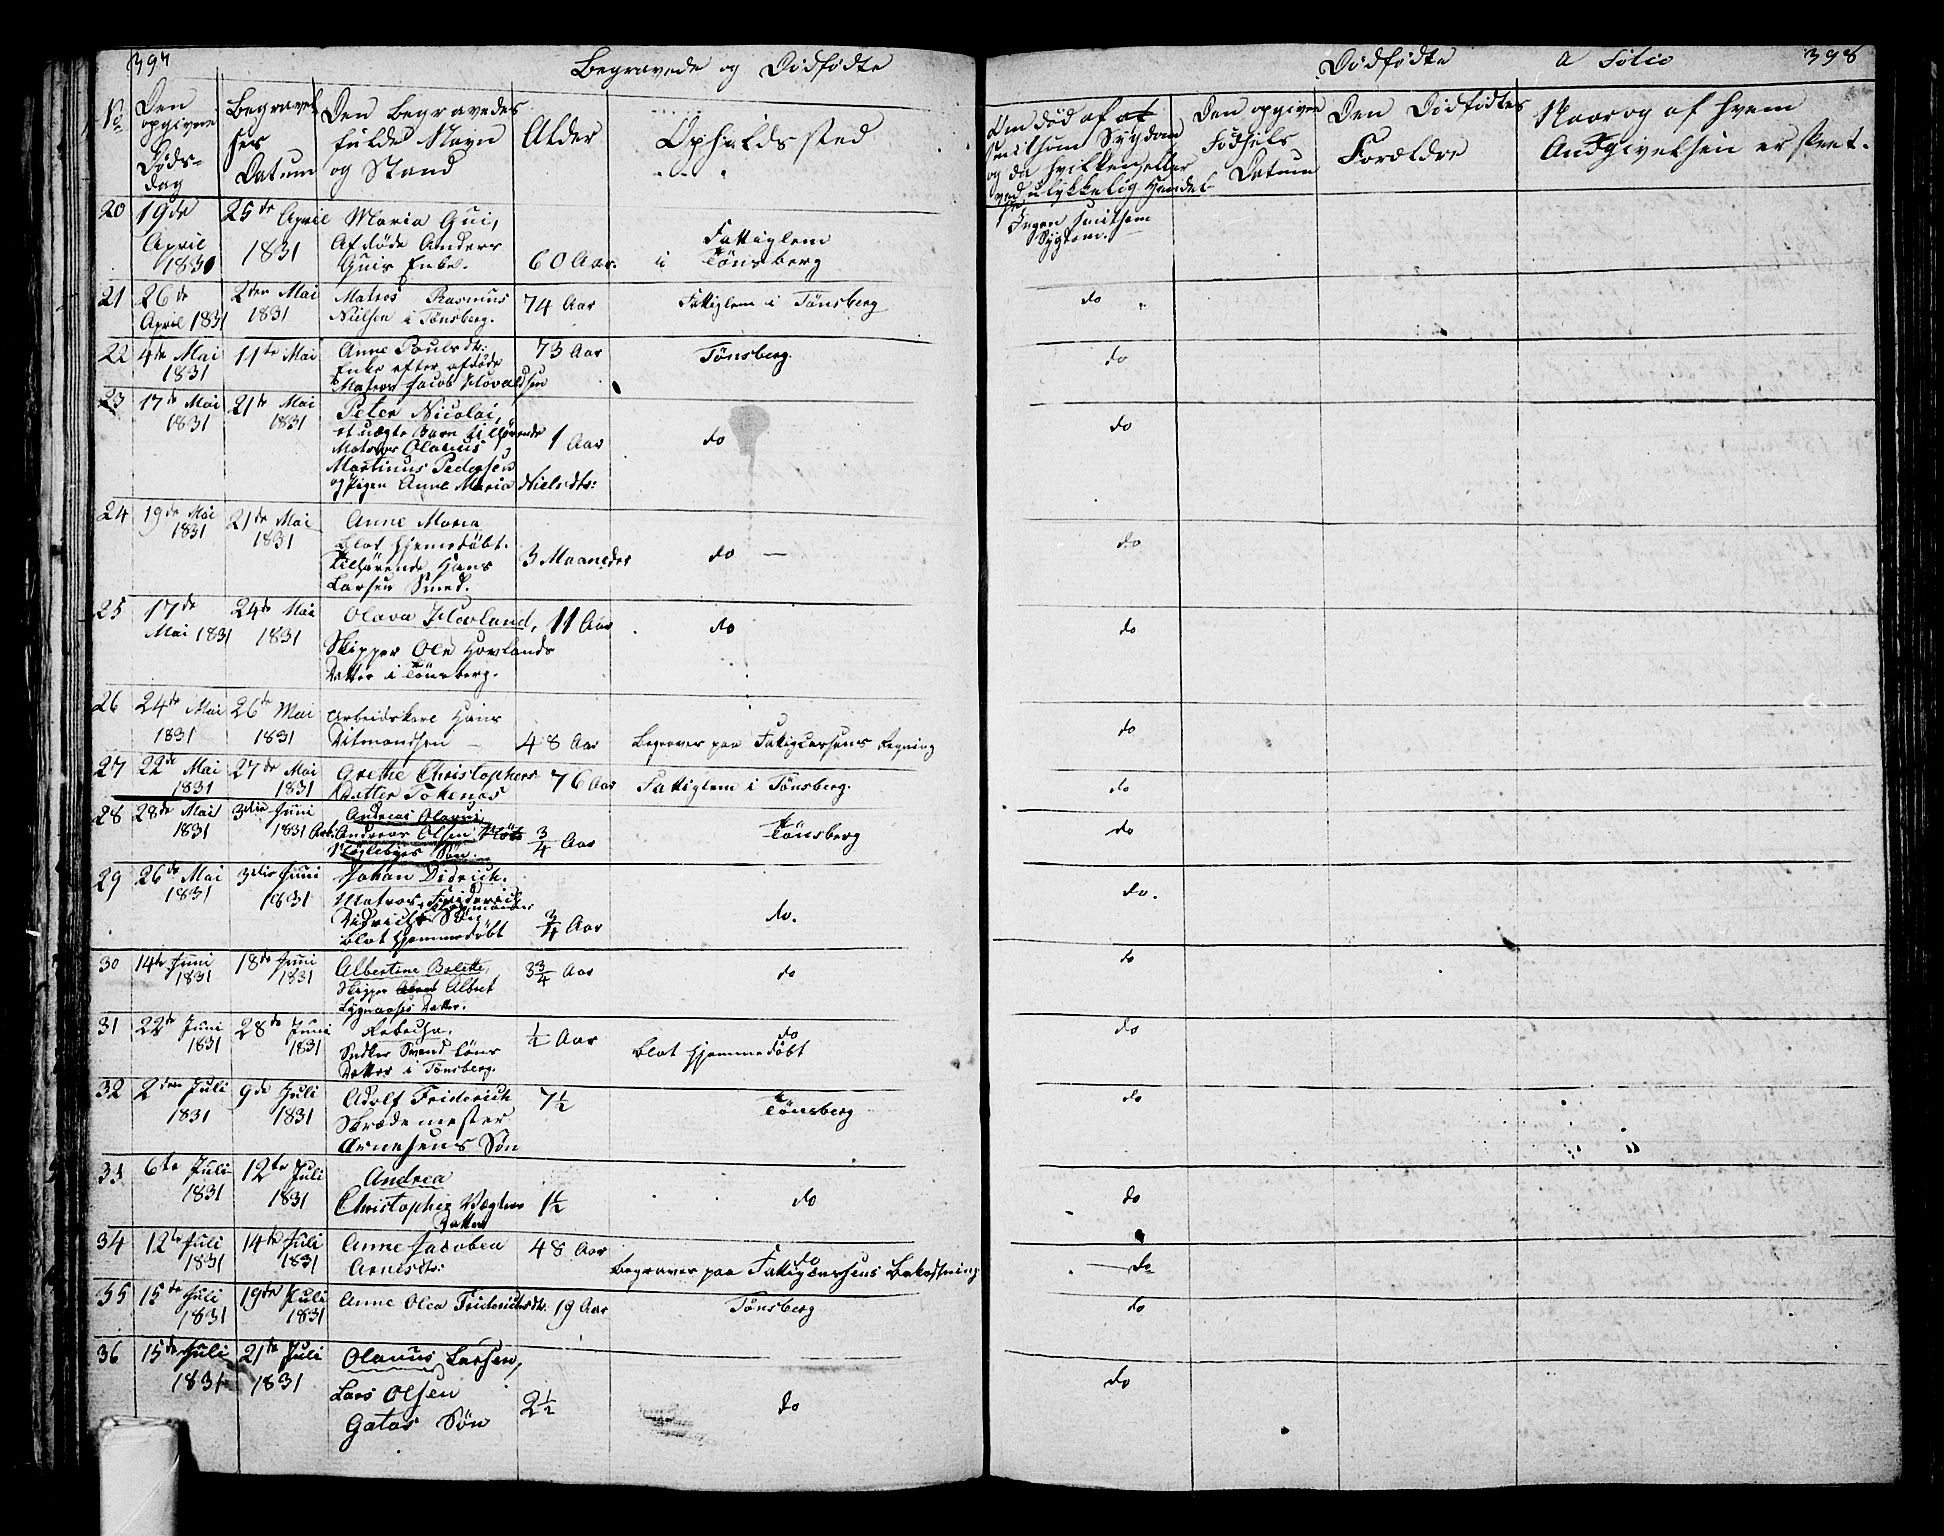 397
Begravede og Dødfødte
No
Den opgivne Døds-dag
Begravel ses Datum
Den Begravedes fulde Navn og Stand
Alder
Opholdssted
20 19de April 1831 25de April 1831 Maria Gui,
Afdøde Anders
Guis Enke. 60 Aar. Fattiglem
i Tönsberg
21 26de April 1831 2den Mai 1831 Matros Rasmus
Nielsen i Tønsberg. 74 Aar Fattiglem i Tönsberg
22 4de Mai 1831 11te Mai Anne Poulsdtr:
Enke efter afdøde
Matros Jacob Hovaldsen 73 Aar Tönsberg.
23 17de Mai 1831 21de Mai 1831 Peter Nicolai,
et uægte Barn tilhørende
Matros Olavus
Martinus Pedersen
og Pigen Anne Maria Nielsdtr: 1 Aar do
24 19de Mai 1831 21de Mai 1831 Anne Maria
blot hjemedøbt.
Tilhørende Hans
Larsen Smed. 3 Maaneder do —
25 17de Mai 1831 24de Mai 1831 Olava Hovland,
Skipper Ole Hovlands
Datter i Tönsberg. 11 Aar do
26 24de Mai 1831 26de Mai 1831 Arbeidskarl Hans
Ditmandsen — 48 Aar Begraves paa Fattigcassens Regning
27 22de Mai 1831 27de Mai 1831 Grethe Christophers
Datter 76 Aar Fattiglem i Tönsberg.
28 28de Mai 1831 3die Juni 1831 Andreas Olavus
Andreas Olsen
Søn. 3/4 Aar Tönsberg
29 26de Mai 1831 3die Juni 1831 Johan Didrich.
Matros Friderich
Didrichs Søn
blot hjemmedøbt 3/4 Aar do.
30 14de Juni 1831 18de Juni 1831 Albertine Bolette,
Skipper Albret
Datter. 3 3/4 Aar do
31 22de Juni 1831 28de Juni 1831 Rebecha.
Svend
Datter i Tønsberg. 1/2 Aar do
blot hjemmedøbt
32 2den Juli 1831 9de Juli 1831 Adolf Friderich
Skrædemester
Arnesens Søn 7 1/2 Tönsberg
33 6te Juli 1831 12te Juli 1831 Andrea
Christopher Vægters
Datter 1 1/2 do
34 12te Juli 1831 14de Juli 1831 Anne Jacobea
Arnesdtr: 48 Aar do
Begraves paa Fattigcassens Bekostning
35 15de Juli 1831 19de Juli 1831 Anne Olea Fridrichsdtr: 19 Aar Tönsberg
36 15de Juli 1831 21de Juli 1831 Olavus Larsen,
Lars Olsen
Gatas Søn 2 1/2 do
Dødfødte a Folio 398
Om død af
smitsom Sygdom
og da hvilken eller
ved ulykkelig Hændel-
se
Den opgivne
Fødsels
Datum
Den Dødfødtes
Forældre
Naar og af hvem
Andgivelsen er skeet.
Ingen smitsom
Sygdom.
do
do
do
do
do
do
do
do
do.
do
do
do
do
do
do
do